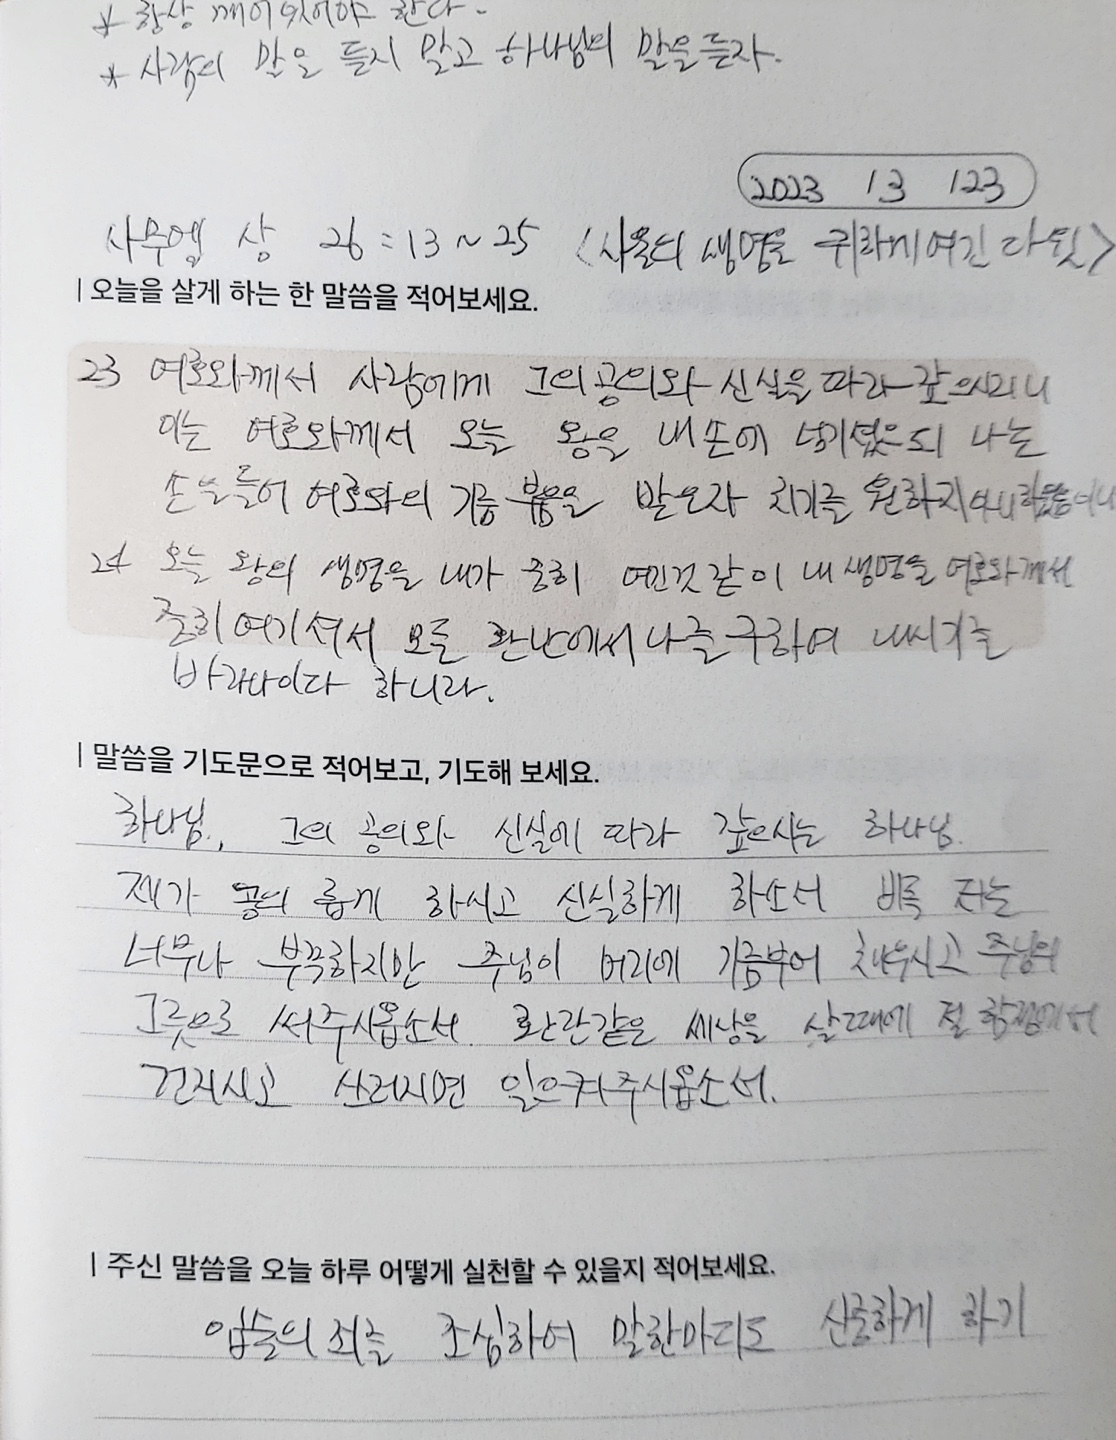 * 항상 깨어있어야 한다.
* 사람의 말을 듣지 말고 하나님의 말을듣자.
2023 1.3 123
사무엘 상 26 : 13 ~ 25 <사울의 생명을 귀하게여긴 다윗>
| 오늘을 살게 하는 한 말씀을 적어보세요.
23 여호와께서 사람에게 그의공의와 신실을 따라 갚으시리니
이는 여호와께서 오늘 왕을 내손에 넘기셨으되 나는
손을 들어 여호와의 기름 부음을 받은자 치기를 원하지아니하였음이니
24 오늘 왕의 생명을 내가 중히 여긴것 같이 내 생명을 여호와께서
중히여기셔서 모든 환난에서 나를 구하여 내시기를
바라나이다 하니라.
| 말씀을 기도문으로 적어보고, 기도해 보세요.
하나님., 그의 공의와 신실에 따라 갚으시는 하나님.
제가 공의 롭게 하시고 신실하게 하소서 비록 저는
너무나 부족하지만 주님이 머리에 기름부어 채우시고 주님의
그릇으로 써주시옵소서. 환란같은 세상을 살때에 절 함정에서
건지시고 쓰러지면 일으켜주시옵소서.
| 주신 말씀을 오늘 하루 어떻게 실천할 수 있을지 적어보세요.
입술의죄를 조심하여 말한마디도 신중하게 하기